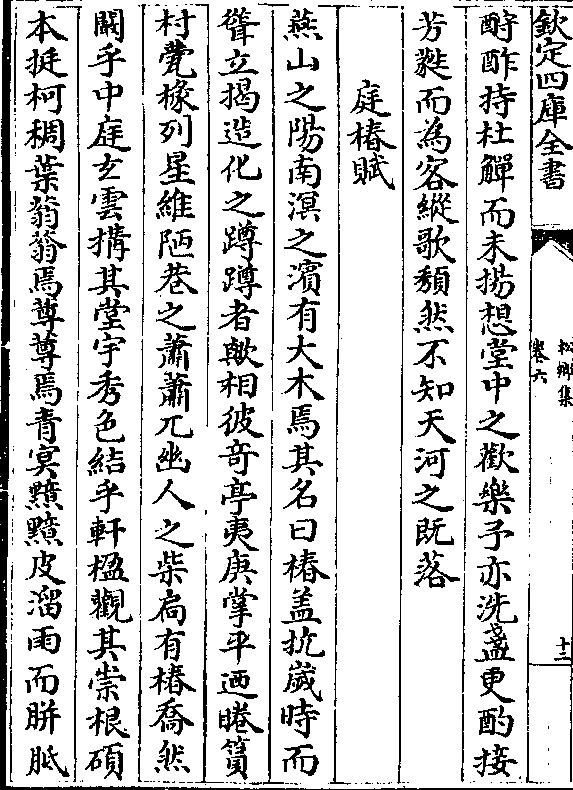 欽定四庫全書
松鄉集
卷六
十三
酬酢持杜觶而未揚想堂中之歡樂予亦洗盞更酌接
芳蕤而為客縱歌頽然不知天河之既落
庭椿賦
燕山之陽南溟之濱有大木焉其名曰椿盖抗歲時而
聳立揭造化之蹲蹲者歟相彼奇亭夷庚掌平迺睠篔
村甍椽列星維陋巷之蕭蕭兀幽人之柴扃有椿喬然
闖乎中庭玄雲搆其堂宇秀色結乎軒楹觀其崇根碩
本挺柯稠葉蓊蓊焉蓴蓴焉青冥黷黷皮溜雨而胼胝